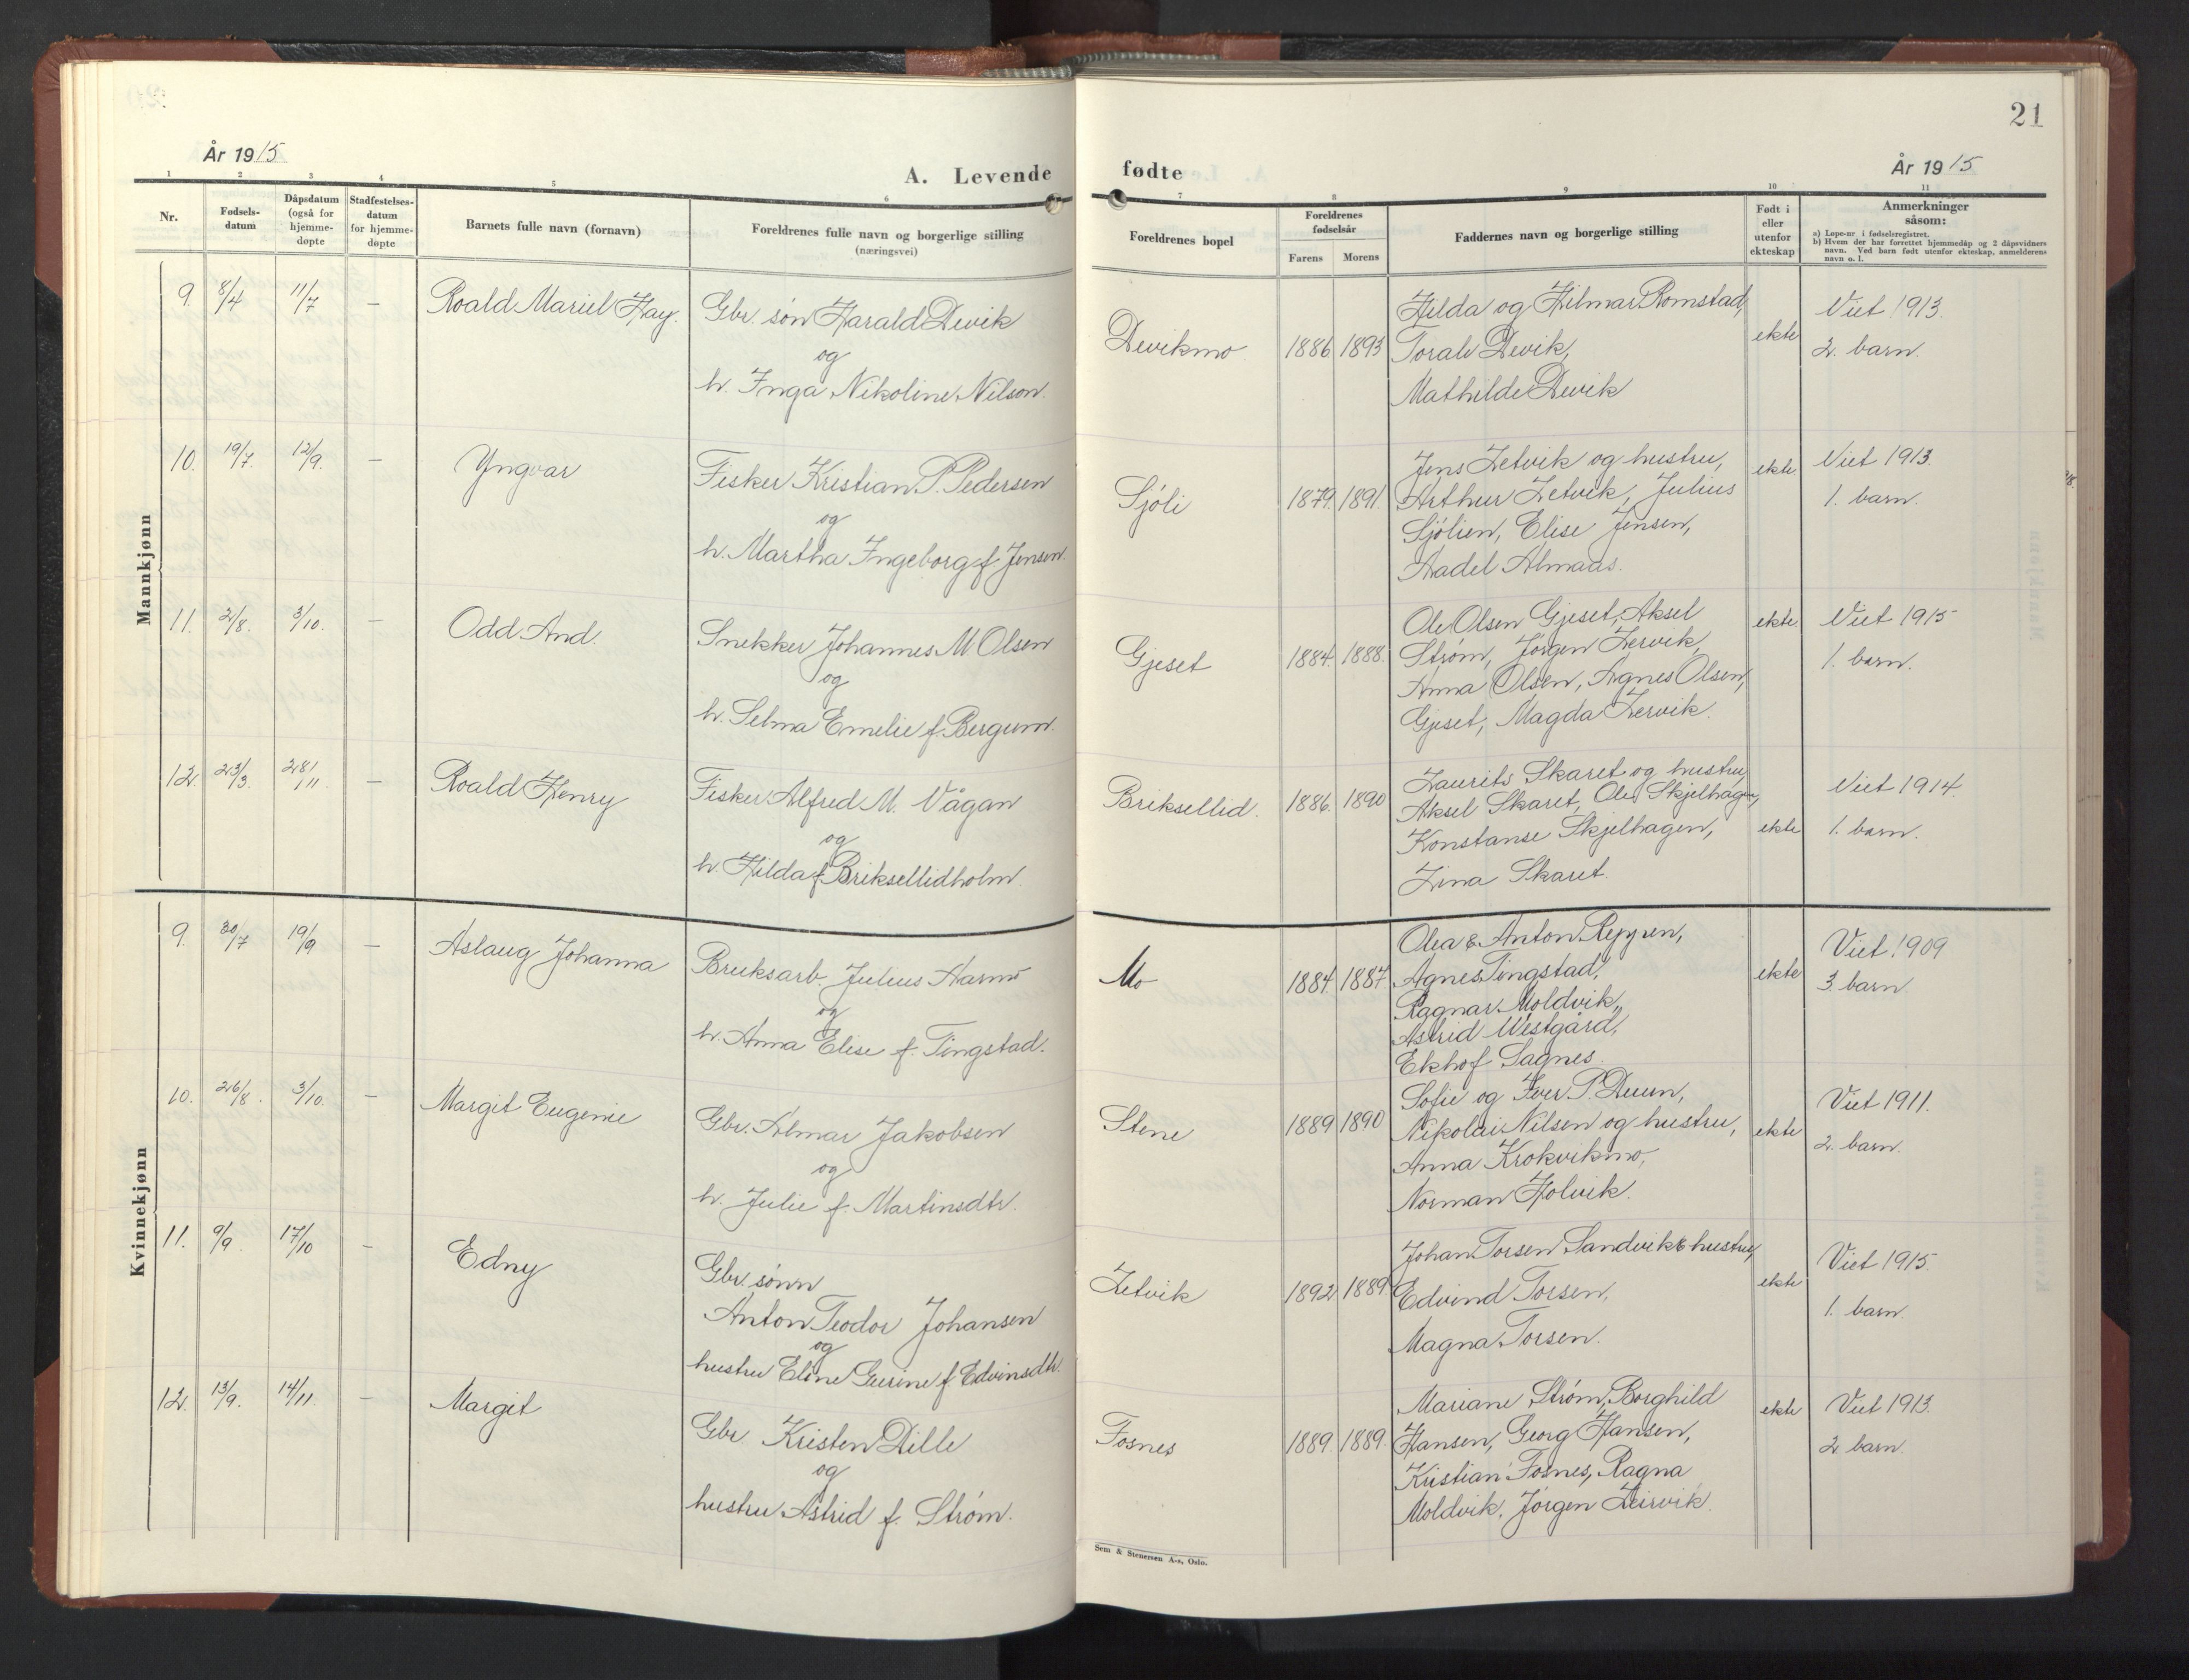 21
År 1915
A. Levende
fødte
År 1915
1 2 3 4 5 6 7 8 9 10 11
Nr.
Fødsels-
datum
Dåpsdatum
(også for
hjemme-
døpte
Stadfestelses-
datum
for hjemme-
døpte
Barnets fulle navn (fornavn)
Foreldrenes fulle navn og borgerlige stilling
(næringsvei)
Foreldrenes bopel
Foreldrenes
fødselsår
Farens Morens
Faddernes navn og borgerlige stilling
Født i
eller
utenfor
ekteskap
Anmerkninger
såsom:
a) Løpe-nr i fødselsregistret.
b) Hvem der har forrettet hjemmedåp og 2 dåpsvidners
navn. Ved barn født utenfor ekteskap, anmelderens
navn o. l.
Mannkjønn
9. 8/4 11/7 — Roald Mariel Hay.
Gbr. søn Harald Devik
og
h. Inga Nikoline Nilson.
Devikmo 1886 1893
Hilda og Hilmar Romstad,
Toralv Devik,
Mathilde Devik
ekte
Viet 1913.
2. barn.
10. 19/7. 12/9. — Yngvar
Fisker Kristian P. Pedersen
og
h. Martha Ingeborg f. Jensen.
Sjöli 1879. 1891.
Jens Letvik og hustru,
Arthur Letvik, Julius
Sjölien, Elise Jensen,
Aadel Almaas.
ekte.
Viet 1913.
1. barn.
11. 2/8. 3/10. — Odd And.
Snekker Johannes M. Olsen
og
h. Selma Emelie f. Bergum.
Gjeset 1884. 1888.
Ole Olsen Gjeset, Aksel
Strøm, Jörgen Lervik,
Anna Olsen, Agnes Olsen,
Gjeset, Magda Lervik.
ekte
Viet 1915
1. barn.
12. 23/3. 28/11 — Roald Henry
Fisker Alfred M. Vågan
og
h. Hilda f. Briksellidholm.
Briksellid. 1886. 1890
Laurits Skaret og hustru,
Aksel Skaret, Ole Skjelhagen,
Konstanse Skjelhagen,
Lina Skaret.
ekte
Viet 1914.
1. barn.
Kvinnekjønn
9. 30/7 19/9 — Aslaug Johanna
Bruksarb. Julius Aarmo
og
h. Anna Elise f. Tingstad.
Mo 1884. 1887
Olea & Anton Reppen,
Agnes Tingstad,
Ragnar Moldvik,
Astrid Westgård,
Ekhof Sagnes.
ekte
Viet 1909
3. barn
10. 26/8. 3/10. — Margit Eugenie
Gbr. Almar Jakobsen
og
h. Julie f. Martinsdtr.
Stene 1889 1890
Sofie og Iver P. Duun,
Nikolai Nilsen og hustru,
Anna Krokvikmo,
Norman Holvik.
ekte
Viet 1911.
2. barn.
11. 9/9. 17/10 — Edny
Gbr. sønn
Anton Teodor Johansen
og
hustru Eline Gurine f. Edvinsdtr.
Letvik 1892 1889
Johan Torsen Sandvik & hustru,
Edvind Torsen,
Magna Torsen.
ekte
Viet 1915.
1. barn.
12. 13/9. 14/11 — Margit
Gbr Kristen Dille
og
hustru Astrid f. Strøm.
Fosnes 1889. 1889.
Mariane Strøm, Borghild
Hansen, Georg Hansen,
Kristian Fosnes, Ragna
Moldvik, Jörgen Leirvik.
ekte
Viet 1913.
2 barn.
Sem & Stenersen A-s, Oslo.